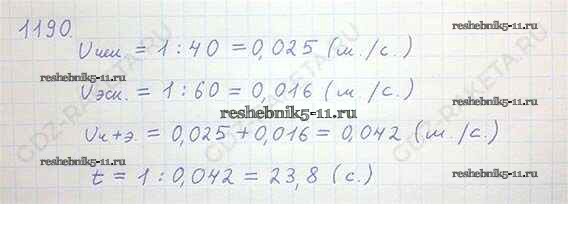 1190.
Vчел. = 1 : 40 = 0,025 (м./с.)
reshebnik5-11.ru reshebnik5-11.ru
Vэск. = 1 : 60 = 0,016 (м./с.)
reshebnik5-11.ru
Vч+э. = 0,025 + 0,016 = 0,042 (м./с.)
t = 1 : 0,042 = 23,8 (с.)
reshebnik5-11.ru reshebnik5-11.ru
GDZ-RAKETA.RU
GDZ-RAKETA.RU
GDZ-RAKETA.RU